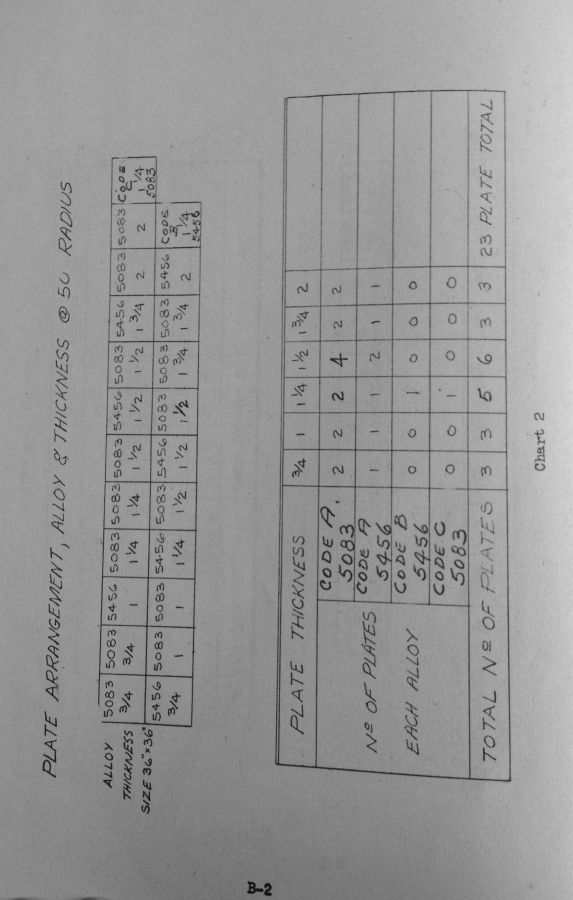 PLATE ARRANGEMENT, ALLOY & THICKNESS @ 50 RADIUS
ALLOY 5083 5083 5456 5083 5083 5083 5456 5083 5456 5083 5083 CODE C
THICKNESS 3/4 3/4 1 1 1/4 1 1/4 1 1/2 1 1/2 1 1/2 1 3/4 2 2 1 1/4 5083
SIZE 36"x36" 5456 5083 5083 5456 5083 5456 5083 5083 5083 5456 CODE B
3/4 1 1 1 1/4 1 1/2 1 1/2 1 1/2 1 3/4 1 3/4 2 1 1/4 5456
PLATE THICKNESS 3/4 1 1 1/4 1 1/2 1 3/4 2
Nº OF PLATES EACH ALLOY
CODE A. 5083 2 2 2 4 2 2
CODE A 5456 1 1 1 2 1 1
CODE B 5456 0 0 1 0 0 0
CODE C 5083 0 0 1 0 0 0
TOTAL Nº OF PLATES 3 3 5 6 3 3 23 PLATE TOTAL
Chart 2
B-2